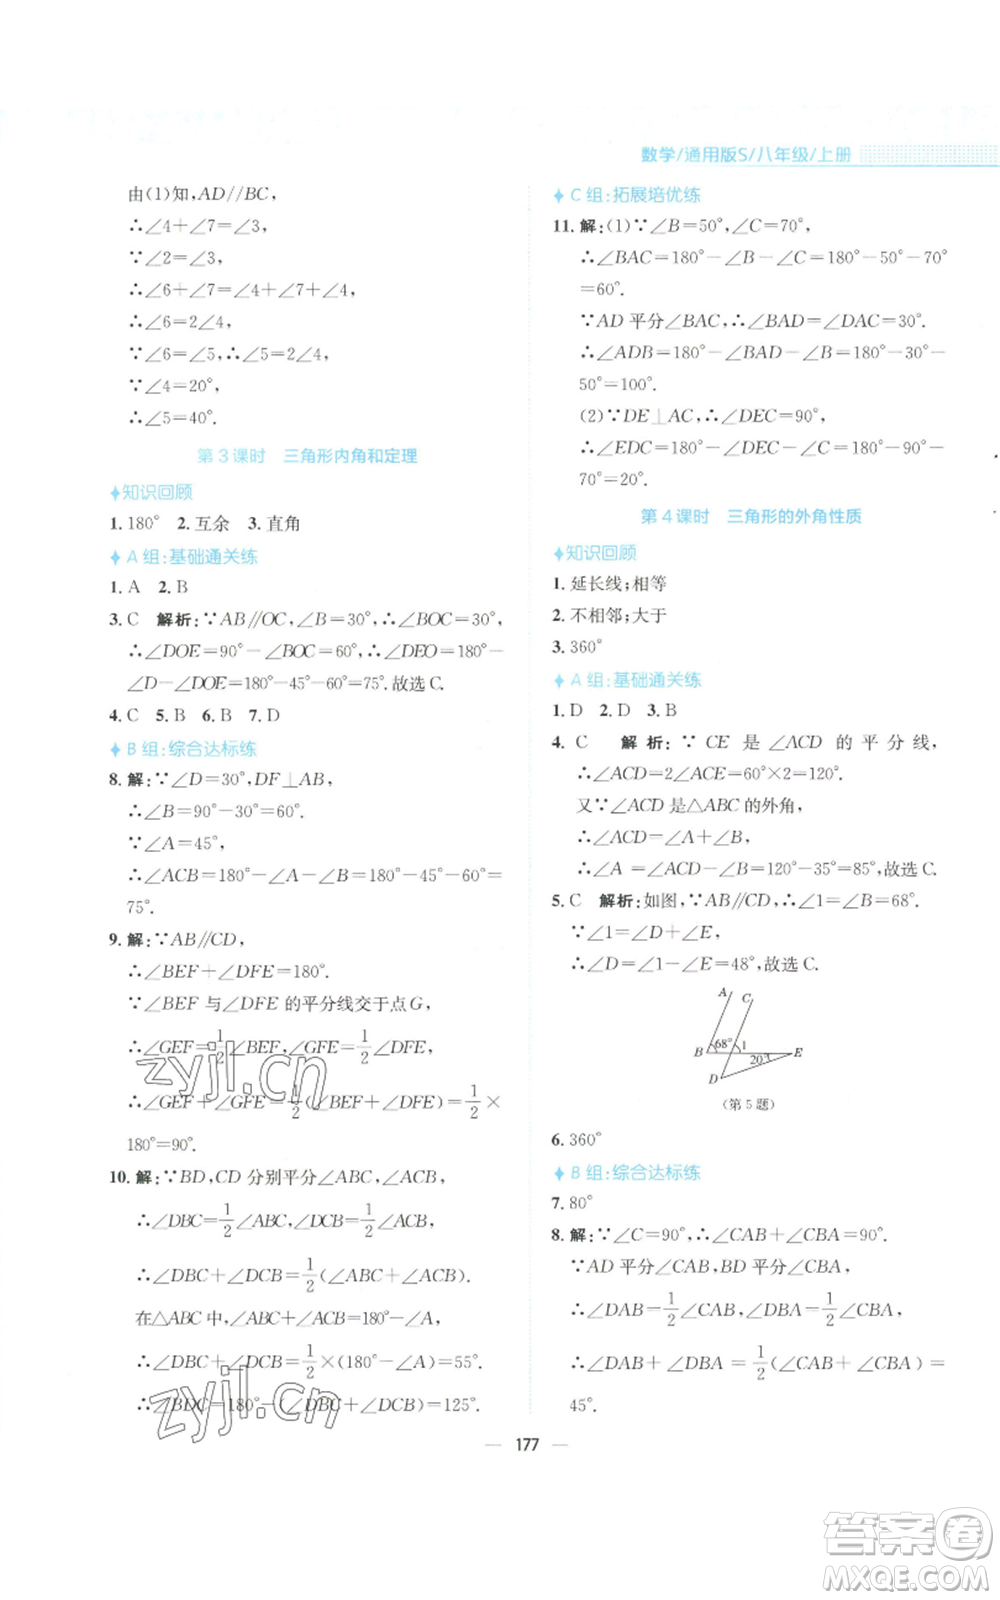 数学/通用版S/八年级/上册
由(1)知,AD//BC,
∴∠4+∠7=∠3,
∵∠2=∠3,
∴∠6+∠7=∠4+∠7+∠4,
∴∠6=2∠4,
∵∠6=∠5,∴∠5=2∠4,
∵∠4=20°,
∴∠5=40°.
第3课时 三角形内角和定理
知识回顾
1.180° 2.互余 3.直角
A组:基础通关练
1. A 2. B
3. C 解析:∵AB//OC,∠B=30°,∠BOC=30°,
∴∠DOE=90°-∠BOC=60°,∴∠DEO=180°-
∠D-∠DOE=180°-45°-60°=75°.故选C.
4. C 5. B 6. B 7. D
B组:综合达标练
8. 解:∵∠D=30°,DF⊥AB,
∴∠B=90°-30°=60°.
∵∠A=45°,
∴∠ACB=180°-∠A-∠B=180°-45°-60°=
75°.
9. 解:∵AB//CD,
∴∠BEF+∠DFE=180°.
∵∠BEF与∠DFE的平分线交于点G,
∴∠GEF=1/2∠BEF,∠GFE=1/2∠DFE,
∴∠GEF+∠GFE=1/2(∠BEF+∠DFE)=1/2×
180°=90°.
10. 解:∵BD,CD分别平分∠ABC,∠ACB,
∴∠DBC=1/2∠ABC,∠DCB=1/2∠ACB,
∴∠DBC+∠DCB=1/2(∠ABC+∠ACB).
在△ABC中,∠BAC=180°-∠A,
∴∠DBC+∠DCB=1/2×(180°-∠A)=55°.
∴∠BDC=180°-(∠DBC+∠DCB)=125°.
C组:拓展培优练
11. 解:(1)∵∠B=50°,∠C=70°,
∴∠BAC=180°-∠B-∠C=180°-50°-70°
=60°.
∵AD平分∠BAC,∴∠BAD=∠DAC=30°.
∴∠ADB=180°-∠BAD-∠B=180°-30°-
50°=100°.
(2)∵DE⊥AC,∴∠DEC=90°,
∴∠EDC=180°-∠C-∠DEC=180°-90°-
70°=20°.
第4课时 三角形的外角性质
知识回顾
1. 延长线;相等
2. 不相邻;大于
3. 360°
A组:基础通关练
1. D 2. D 3. B
4. C 解析:∵CE是∠ACD的平分线,
∴∠ACD=2∠ACE=60°×2=120°.
又∵∠ACD是△ABC的外角,
∴∠ACD=∠A+∠B,
∴∠A=∠ACD-∠B=120°-35°=85°,故选C.
5. C 解析:如图,∵AB//CD,∴∠1=68°.
∵∠1=∠D+∠E,
∴∠D=∠1-∠E=48°,故选C.
A C
B 68° 1 E
20°
D
(第5题)
6. 360°
B组:综合达标练
7. 80°
8. 解:∵∠C=90°,∴∠CAB+∠CBA=90°.
∵AD平分∠CAB,BD平分∠CBA,
∴∠DAB=1/2∠CAB,∠DBA=1/2∠CBA,
∴∠DAB+∠DBA=1/2(∠CAB+∠CBA)=
45°.
177
zyjl.cn
zyjl.cn
答案卷
MXQE.COM